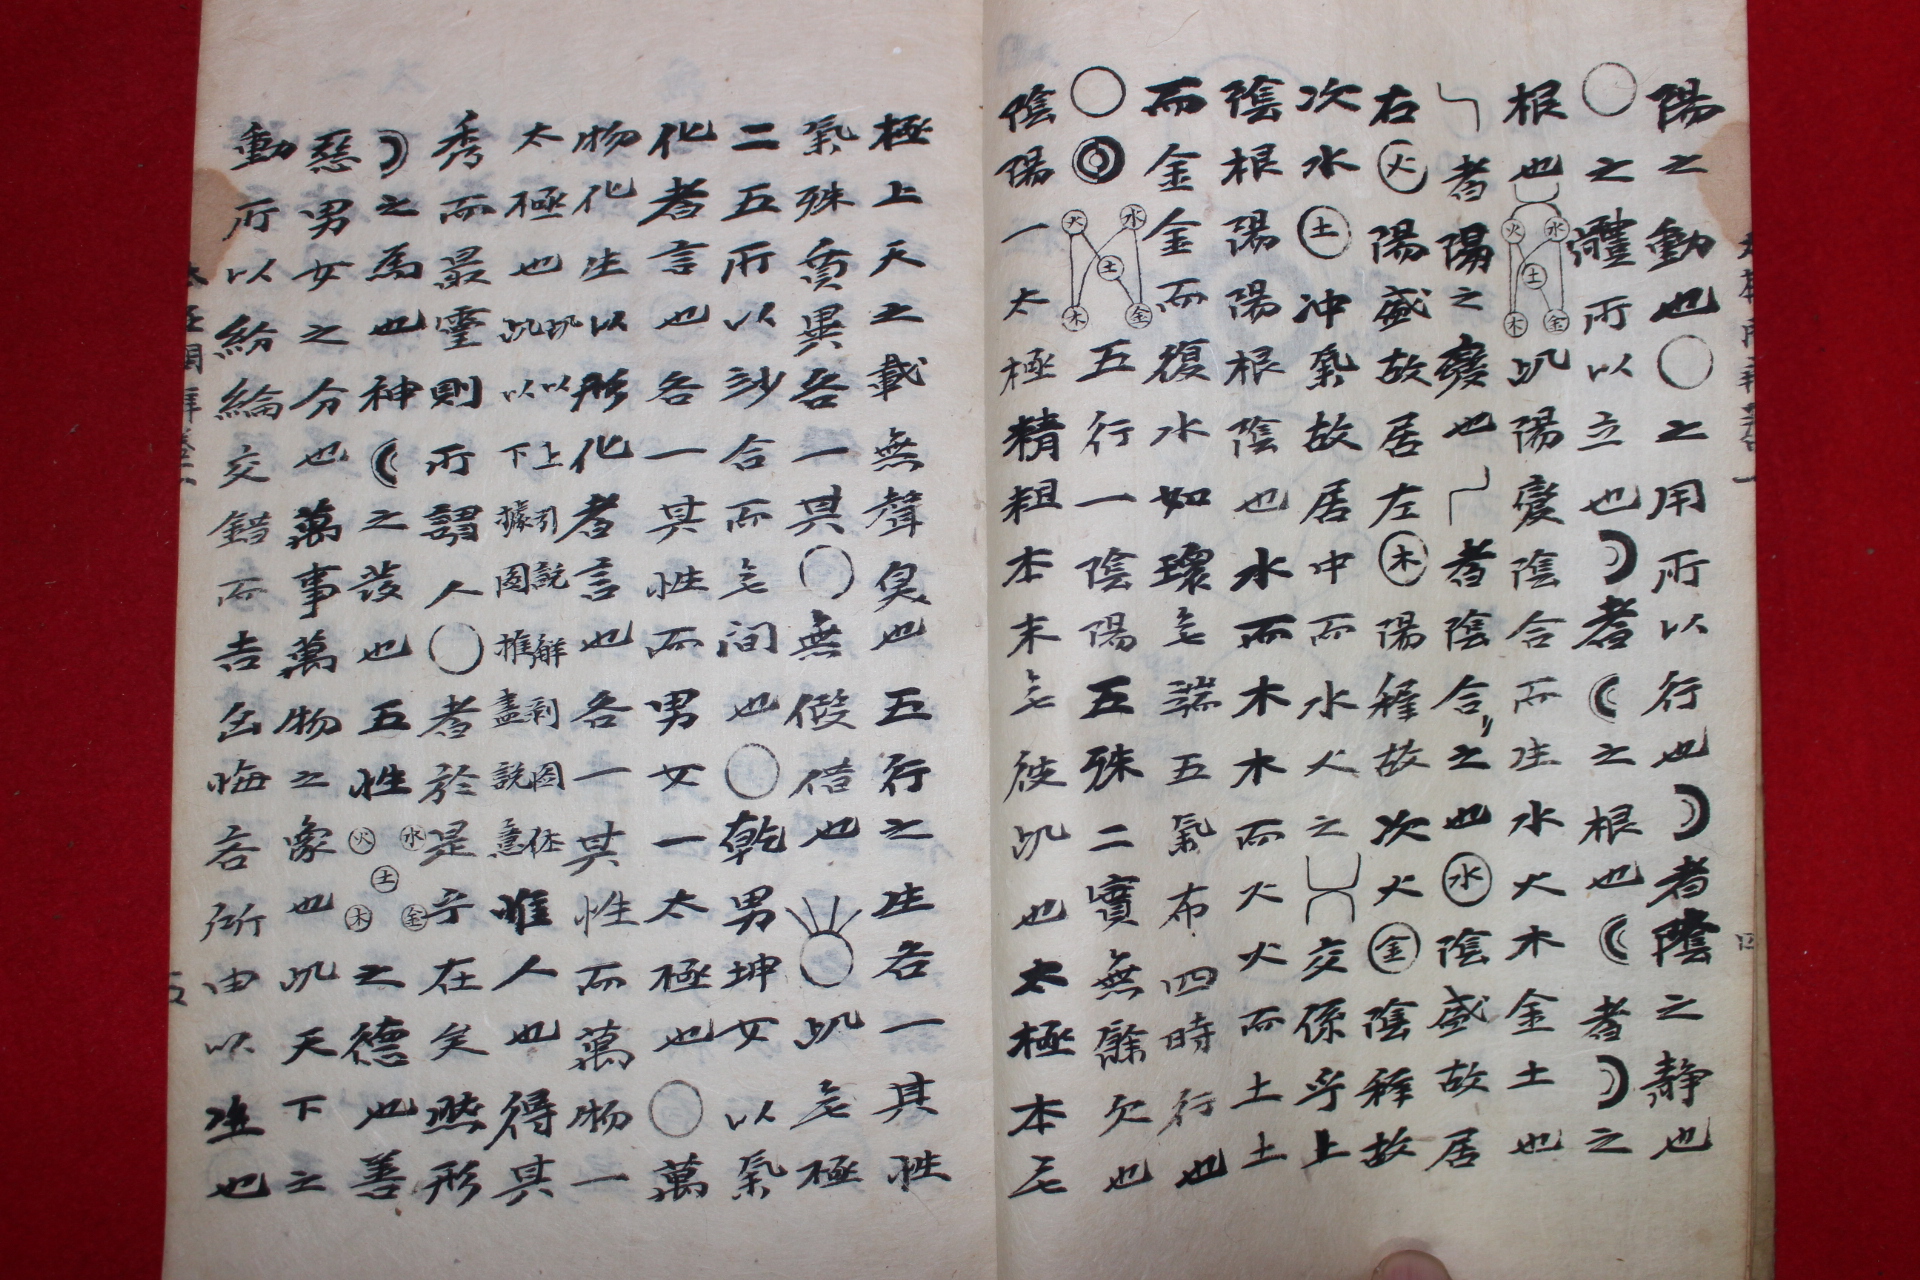 陽之動也○之用所以行也☽者陰之静也
○之體所以立也☽者☾之根也☾者☽之
根也 水火土木金 此陽変陰合而生水火木金土也
者陽之變也 者陰合之也水陰盛故居
右火陽盛故居左木陽穉故次火金陰穉故
次水土冲氣故居中而水火之 交係乎上
陰根陽陽根陰也水而木木而火火而土土
而金金而復水如環无端五氣布四時行也
○◎ 水火土木金 五行一陰陽五殊二實無餘欠也
陰陽一太極精粗本末无彼此也太極本无
極上天之載無聲臭也五行之生各一其性
氣殊質異各一其○無假借也 ○此无極
二五所以妙合而无间也○乾男坤女以氣
化者言也各一其性而男女一太極也○萬
物化生以形化者言也各一其性而萬物一
太極也 此以上引說解剥啚体 此以下據图推盡說意 惟人也得其
秀而最靈則所謂人○者於是乎在矣然形
☽之為也神☾之发也五性 水火土木金 之德也善
惡男女之分也萬事萬物之象也此天下之
動所以紛綸交錯而吉凶悔吝所由以生也